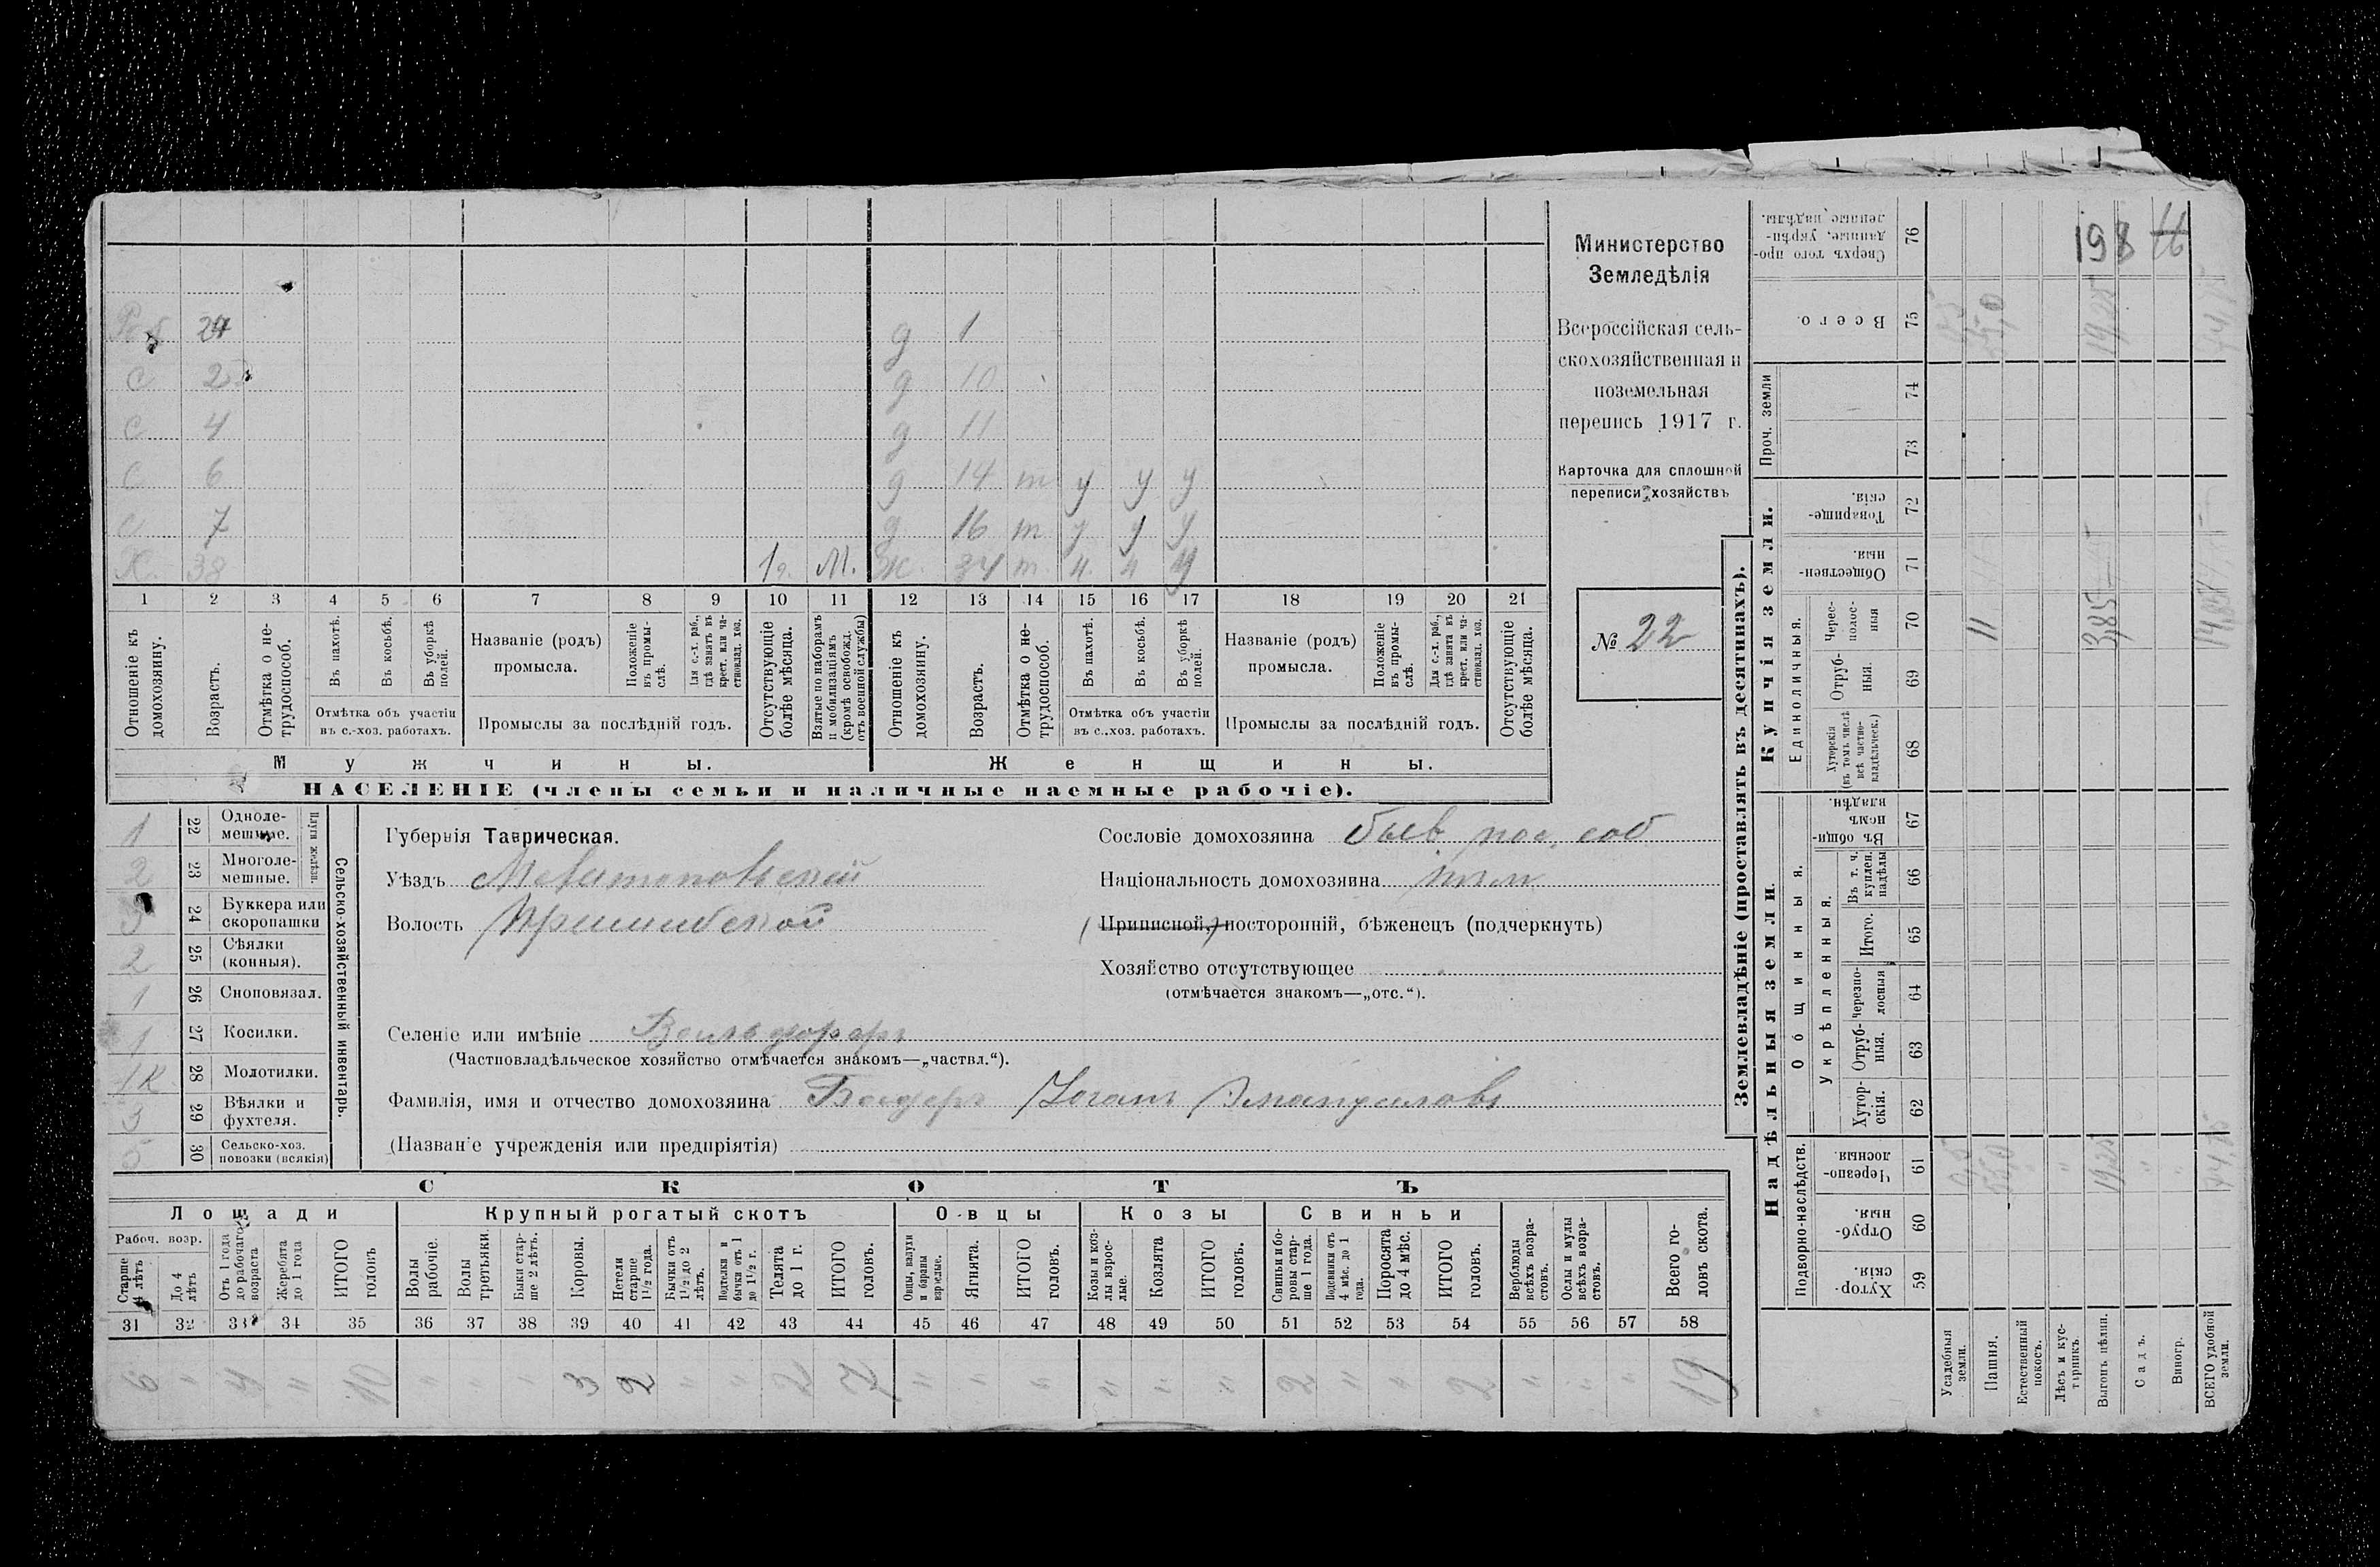 Министерство
Земледѣлія
Всероссійская сель-
скохозяйственная и
поземельная
перепись 1917 г.
Карточка для сплошной
переписи хозяйствъ
№ 22
24 д 1
С 2 д 10
С 4 д 11
С 6 д 14 т у у у
С 7 д 16 т у у у
Х 38 1 г. М. Ж. 34 т. ч. ч у
1 2 3 4 5 6 7 8 9 10 11 12 13 14 15 16 17 18 19 20 21
Отношеніе къ домохозяину.
Возрастъ.
Отмѣтка о не-трудоспособ.
Въ пахотѣ.
Въ косьбѣ.
Въ уборкѣ полей.
Отмѣтка объ участіи
въ с.-хоз. работахъ.
Названіе (родъ)
промысла.
Положеніе въ промы-слѣ.
Для с.-х. раб., гдѣ занятъ въ крест. или ча-стновлад. хоз.
Промыслы за послѣдній годъ.
Отсутствующіе болѣе мѣсяца.
Взятые по наборамъ и мобилизаціямъ (кромѣ освобожд. отъ военной службы)
Отношеніе къ домохозяину.
Возрастъ.
Отмѣтка о не-трудоспособ.
Въ пахотѣ.
Въ косьбѣ.
Въ уборкѣ полей.
Отмѣтка объ участіи
въ с.-хоз. работахъ.
Названіе (родъ)
промысла.
Положеніе въ промы-слѣ.
Для с.-х. раб., гдѣ занята въ крест. или ча-стновлад. хоз.
Промыслы за послѣдній годъ.
Отсутствующіе болѣе мѣсяца.
Мужчины. Женщины.
НАСЕЛЕНІЕ (члены семьи и наличные наемные рабочіе).
Сельско-хозяйственный инвентарь.
Плуги желѣзн.
1 22 Одноле-мешные.
2 23 Многоле-мешные.
3 24 Буккера или скоропашки
2 25 Сѣялки (конныя).
1 26 Сноповязал.
1 27 Косилки.
1К 28 Молотилки.
3 29 Вѣялки и фухтеля.
5 30 Сельско-хоз. повозки (всякія)
Губернія Таврическая.
Уѣздъ Мелитопольскій
Волость Пришибской
Сословіе домохозяина быв. пос. соб
Національность домохозяина нѣм
(Приписной,) посторонній, бѣженецъ (подчеркнуть)
Хозяйство отсутствующее
(отмѣчается знакомъ—„отс.“).
Селеніе или имѣніе
(Частновладѣльческое хозяйство отмѣчается знакомъ—„частвл.“).
Фамилія, имя и отчество домохозяина Іоганъ
(Названіе учрежденія или предпріятія)
СКОТЪ
Лошади Крупный рогатый скотъ Овцы Козы Свиньи
Рабоч. возр.
Старше 4 лѣтъ
До 4 лѣтъ
Отъ 1 года до рабочаго возраста
Жеребята до 1 года
ИТОГО головъ
Волы рабочіе.
Волы третьяки.
Быки стар-ше 2 лѣтъ.
Коровы.
Нетели старше 1½ года.
Бычки отъ 1½ до 2 лѣтъ.
Подтелки и бычки отъ 1 до 1½ г.
Телята до 1 г.
ИТОГО головъ.
Овцы, валухи и бараны взрослые.
Ягнята.
ИТОГО головъ.
Козы и коз-лы взрос-лые.
Козлята
ИТОГО головъ.
Свиньи и бо-ровы стар-ше 1 года.
Подсвинки отъ 4 мѣс. до 1 года.
Поросята до 4 мѣс.
ИТОГО головъ.
Верблюды всѣхъ возра-стовъ.
Ослы и мулы всѣхъ возра-стовъ.
Всего го-ловъ скота.
31 32 33 34 35 36 37 38 39 40 41 42 43 44 45 46 47 48 49 50 51 52 53 54 55 56 57 58
6 " 4 " 10 " " " 3 2 " " 2 7 " " " " " " 2 " " 2 " " " 19
Землевладѣніе (проставлять въ десятинахъ).
Надѣльныя земли. Купчія земли.
Подворно-наслѣдств.
Общинныя.
Укрѣпленныя.
Единоличныя.
Проч. земли
59 Хутор-скія.
60 Отруб-ныя.
61 Черезпо-лосныя.
62 Хутор-скія.
63 Отруб-ныя.
64 Черезпо-лосныя
65 Итого.
66 Въ т. ч. куплен. надѣлы
67 Въ общи-нномъ владѣн.
68 Хуторскія (въ томъ числѣ всѣ частно-владѣльческ.)
69 Отруб-ныя.
70 Черес-полос-ныя
71 Обществен-ныя.
72 Товарище-скія.
73
74
75 Всего.
76 Сверхъ того про-данные, укрѣп-ленные надѣлы.
Усадебныя земли.
Пашня.
Естественный покосъ.
Лѣсъ и кус-тарникъ.
Выгонъ цѣлин.
Садъ.
Виногр.
ВСЕГО удобной земли.
11
3,85
14,85
19,25
19,25
198